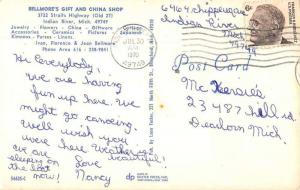 BELLMORE'S GIFT AND CHINA SHOP
3722 Straits Highway (Old 27)
Indian River, Mich. 49749
Jewelry - Flowers - China - Giftware
Accessories - Ceramics - Pictures - Japanese
Kimonos - Purses - Linens
Ivan, Florence & Joan Bellmore
Area 616 - 238-9841
Hi Everybody!
We are having
fun up here. We
might go canoeing.
Well wish you
were here. Weather is
beautiful.
We are
sleeping on
the boat now!
Love
Nancy
JUL 30
AM
1970
49749
6¢
6464 Chippewa
Indian River
Mich
49749
Post Card
Mc Kensies
23487 hill rd
Dearborn Mich.
dp